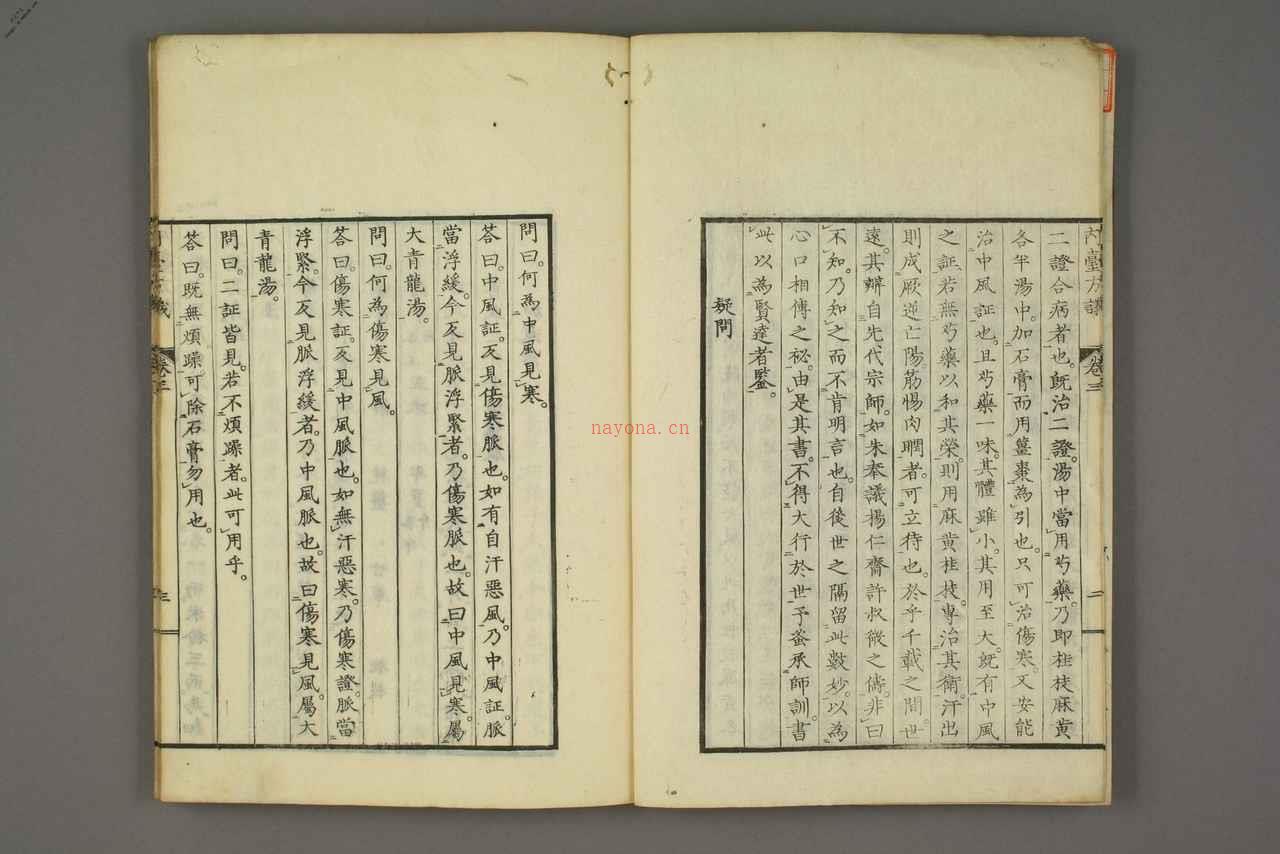 內臺方議
卷三
二證合病者也。既治二證。湯中當用芍藥。乃即桂枝麻黃
各半湯中。加石膏而用薑棗為引也。只可治傷寒。又安能
治中風証也。且芍藥一味。其體雖小。其用至大。既有中風
之証。若無芍藥以和其榮。則用麻黃桂枝。專治其衛。汗出
則成厥逆亡陽。筋惕肉瞤者。可立待也。於乎千載之間。世
遠。其辨自先代宗師。如朱奉議揚仁齋許叔微之儔。非曰
不知。乃知之而不肯明言也。自後世之隔留此數妙。以為
心口相傳之祕。由是其書。不得大行於世。予蚤承師訓。書
此以為賢達者鑒。
疑問
問曰。何為中風見寒。
答曰。中風証。反見傷寒脈也。如有自汗惡風。乃中風証。脈
當浮緩。今反見脈浮緊者。乃傷寒脈也。故曰中風見寒。屬
大青龍湯。
問曰。何為傷寒見風。
答曰。傷寒証。反見中風脈也。如無汗惡寒。乃傷寒證。脈當
浮緊。今反見脈浮緩者。乃中風脈也。故曰傷寒見風。屬大
青龍湯。
問曰。二証皆見。若不煩躁者。此可用乎。
答曰。既無煩躁。可除石膏勿用也。
nayona.cn